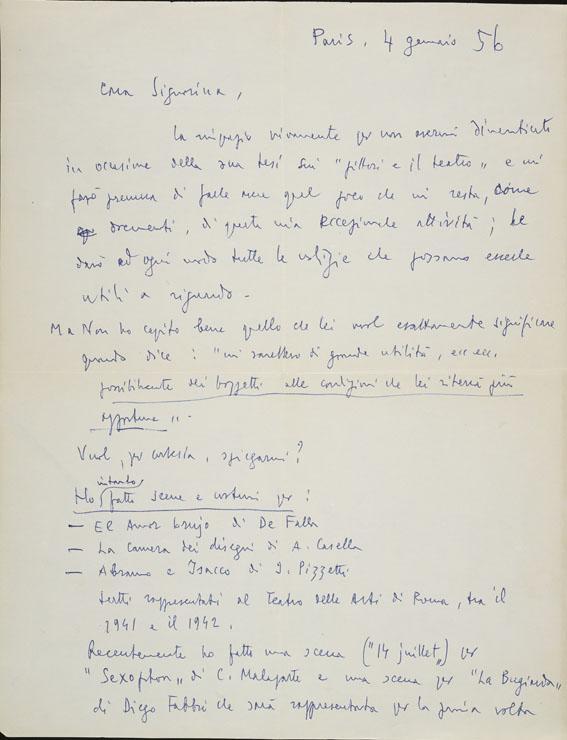 Paris, 4 gennaio 56
Cara Signorina,
La ringrazio vivamente per non avermi dimenticato
in occasione della sua tesi sui "pittori e il teatro" e mi
farò premura di farle avere quel poco che mi resta, come
documenti, di questa mia eccezionale attività; le
darò ad ogni modo tutte le notizie che possano esserle
utili a riguardo -
Ma Non ho capito bene quello che lei vuol esattamente significare
quando dice: "mi sarebbero di grande utilità, ecc ecc.
possibilmente dei bozzetti alle condizioni che lei riterrà più
opportune" -
Vuol, per cortesia, spiegarmi?
Ho intanto fatto scene e costumi per:
— El Amor brujo di De Falla
— La Camera dei disegni di A. Casella
— Abramo e Isacco di I. Pizzetti
tutti rappresentati al Teatro delle Arti di Roma, tra il
1941 e il 1942.
Recentemente ho fatto una scena ("14 juillet") per
"Sexophon" di C. Malaparte e una scena per "La Bugiarda"
di Diego Fabbri che sarà rappresentata per la prima volta